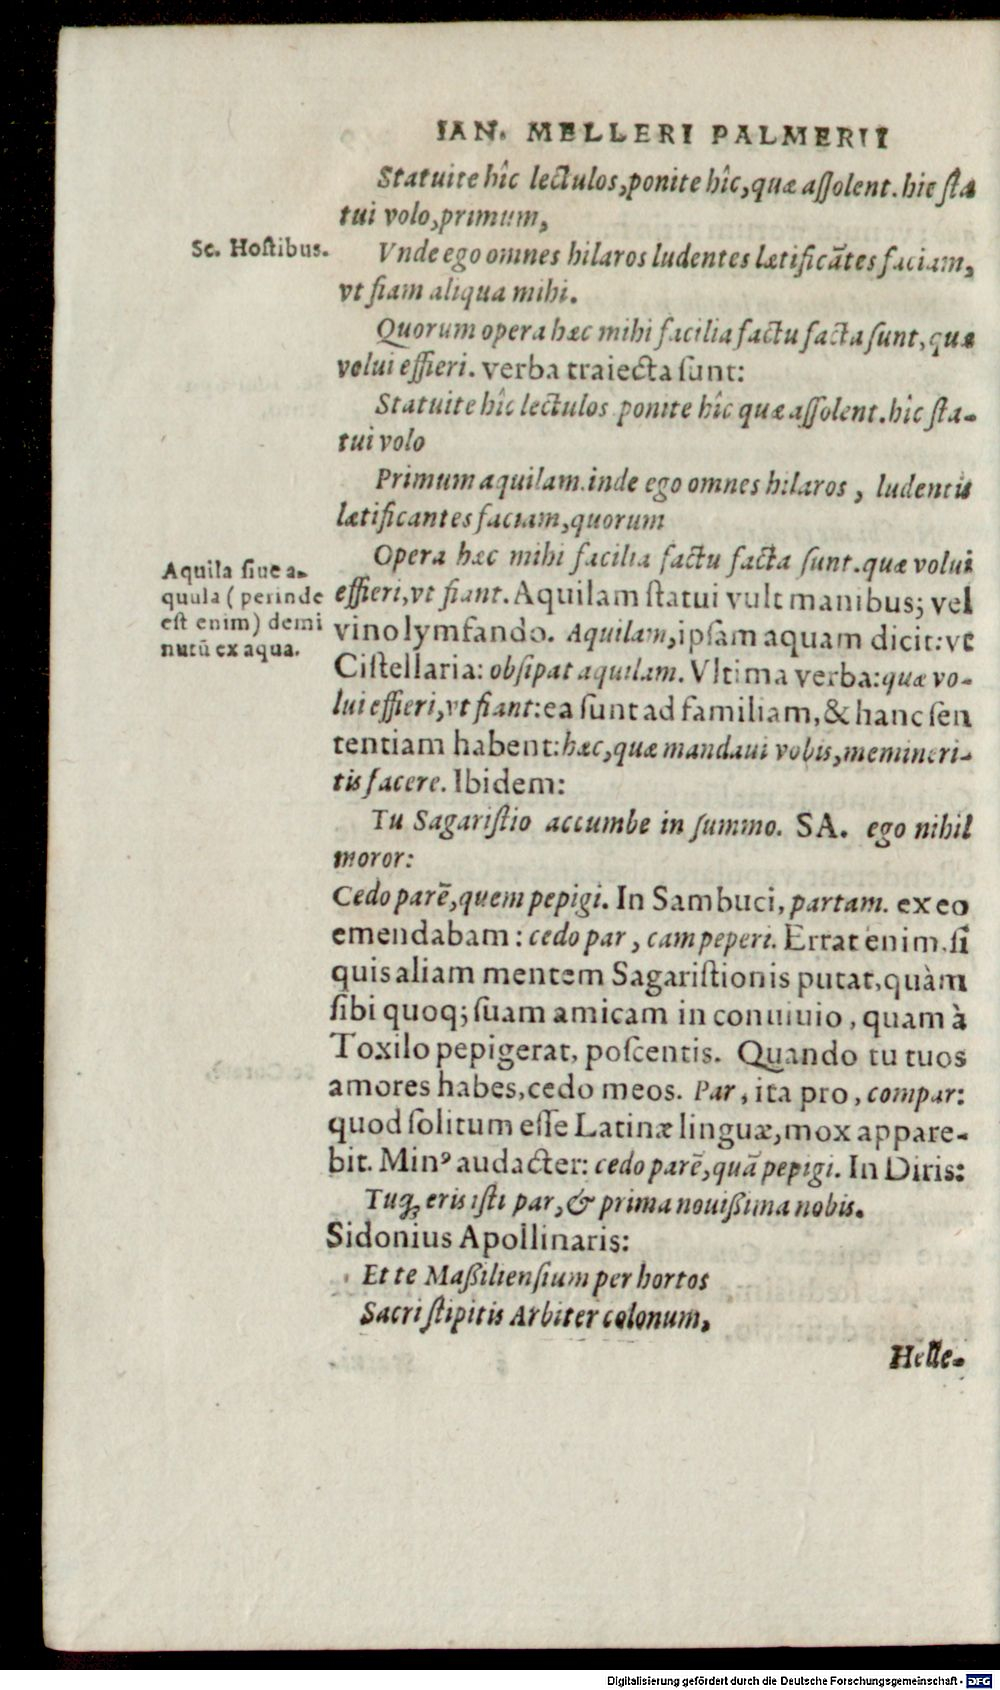 IAN. MELLERI PALMERII
Statuite hîc lectulos, ponite hîc, quæ aſſolent. hîc ſta
tui volo, primum,
Sc. Hoſtibus.
Vnde ego omnes hilaros ludentes lætificãtes faciam,
vt fiam aliqua mihi.
Quorum opera hæc mihi facilia factu facta ſunt, quæ
volui effieri. verba traiecta ſunt:
Statuite hîc lectulos ponite hîc quæ aſſolent. hîc ſta-
tui volo
Primum aquilam. inde ego omnes hilaros, ludentis
lætificantes faciam, quorum
Opera hæc mihi facilia factu facta ſunt. quæ volui
effieri, vt fiant. Aquilam ſtatui vult manibus; vel
vino lymfando. Aquilam, ipſam aquam dicit: vt
Ciſtellaria: obſipat aquilam. Vltima verba: quæ vo-
lui effieri, vt fiant: ea ſunt ad familiam, & hanc ſen
tentiam habent: hæc, quæ mandaui vobis, memineri-
tis facere. Ibidem:
Aquila ſiue a-
quula (perinde
eſt enim) demi
nutũ ex aqua.
Tu Sagariſtio accumbe in ſummo. SA. ego nihil
moror:
Cedo parẽ, quem pepigi. In Sambuci, partam. ex eo
emendabam: cedo par, cam peperi. Errat enim, ſi
quis aliam mentem Sagariſtionis putat, quàm
ſibi quoq; ſuam amicam in conuiuio, quam à
Toxilo pepigerat, poſcentis. Quando tu tuos
amores habes, cedo meos. Par, ita pro, compar:
quod ſolitum eſſe Latinæ linguæ, mox appare-
bit. Minꝰ audacter: cedo parẽ, quã pepigi. In Diris:
Tuq; eris iſti par, & prima nouißima nobis.
Sidonius Apollinaris:
Et te Maßilienſium per hortos
Sacri ſtipitis Arbiter colonum,
Helle-
Digitalisierung gefördert durch die Deutsche Forschungsgemeinschaft - DFG